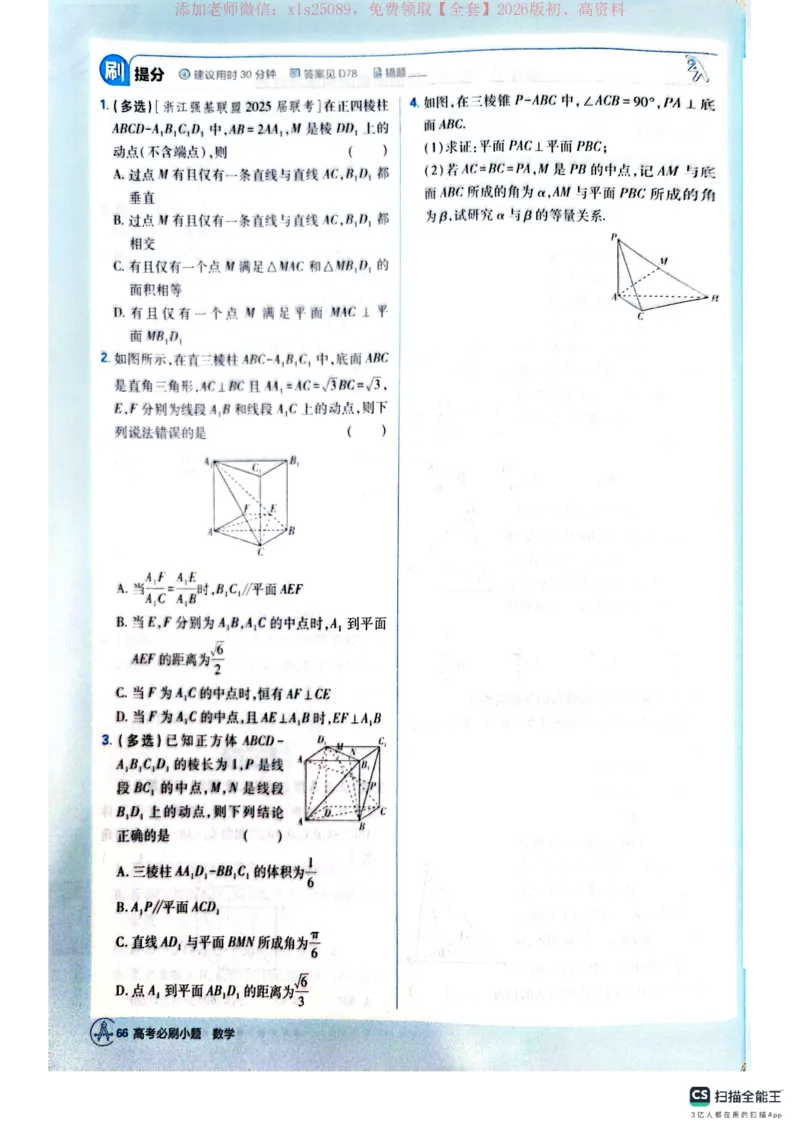 添加老师微信：xls25089，免费领取【全套】2026版初、高资料
刷 提分 建议用时30分钟 答案见D78 错题
1. (多选)[浙江强基联盟2025届联考]在正四棱柱
ABCD-A₁B₁C₁D₁中,AB=2AA₁,M是棱DD₁上的
动点(不含端点),则 ( )
A. 过点M有且仅有一条直线与直线AC,B₁D₁都
垂直
B. 过点M有且仅有一条直线与直线AC,B₁D₁都
相交
C. 有且仅有一个点M满足△MAC和△MB₁D₁的
面积相等
D. 有且仅有一个点M满足平面MAC⊥平
面MB₁D₁
2. 如图所示,在直三棱柱ABC-A₁B₁C₁中,底面ABC
是直角三角形,AC⊥BC且AA₁=AC=√3BC=√3,
E,F分别为线段A₁B和线段A₁C上的动点,则下
列说法错误的是 ( )
A₁ B₁ C₁
F E
A B
C
A. 当A₁F/A₁C=A₁E/A₁B时,B₁C₁//平面AEF
B. 当E,F分别为A₁B,A₁C的中点时,A₁到平面
AEF的距离为√6/2
C. 当F为A₁C的中点时,恒有AF⊥CE
D. 当F为A₁C的中点,且AE⊥A₁B时,EF⊥A₁B
3. (多选)已知正方体ABCD-
A₁B₁C₁D₁的棱长为1,P是线
段BC₁的中点,M,N是线段
B₁D₁上的动点,则下列结论
正确的是 ( )
D₁ M N C₁
A₁ B₁
P
D C
A B
A. 三棱柱AA₁D₁-BB₁C₁的体积为1/6
B. A₁P//平面ACD₁
C. 直线AD₁与平面BMN所成角为π/6
D. 点A₁到平面AB₁D₁的距离为√6/3
4. 如图,在三棱锥P-ABC中,∠ACB=90°,PA⊥底
面ABC.
(1)求证:平面PAC⊥平面PBC;
(2)若AC=BC=PA,M是PB的中点,记AM与底
面ABC所成的角为α,AM与平面PBC所成的角
为β,试研究α与β的等量关系.
P
M
A B
C
66 高考必刷小题 数学
CS 扫描全能王
3亿人都在用的扫描App